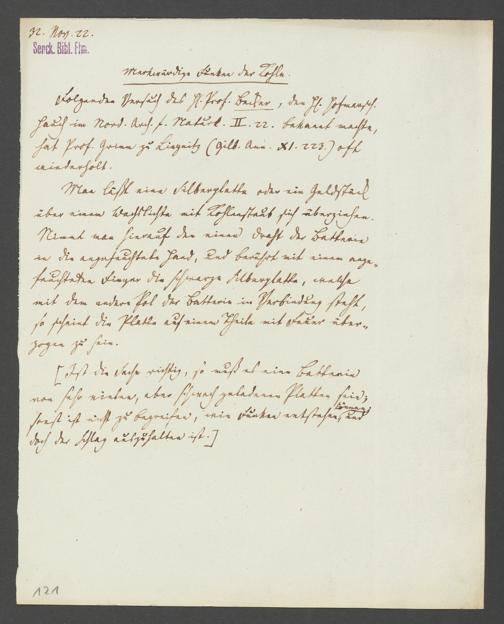 32. Nov. 22.
Serck. Bibl. Ffm.
Merkwürdige Funken der Kohle.
Folgenden Versuch des H. Prof. , den H. Hofmansch.
Hauch im Nord. Arch. f. Naturk. II. 22. bekannt machte,
hat Prof. Grimm zu Liegnitz (Gilb. Ann. XI. 223.) oft
wiederholt.
Man läßt eine Silberplatte oder ein Geldstück
über einem Wachslichte mit Kohlenstaub sich überziehen.
Nimmt man hierauf den einen Draht der Batterie
in die angefeuchtete Hand, und berührt mit einem ange-
feuchteten Finger die schwarze Silberplatte, welche
mit dem andern Pol der Batterie in Verbindung steht,
so scheint die Platte auf einem Theile mit Feuer über-
zogen zu sein.
[Ist die Sache richtig, so muß es eine Batterie
von sehr vielen, aber schwach geladenen Platten sein;
sonst ist nicht zu begreifen, wie Funken entstehen können und
doch der Schlag auszuhalten ist.]
121